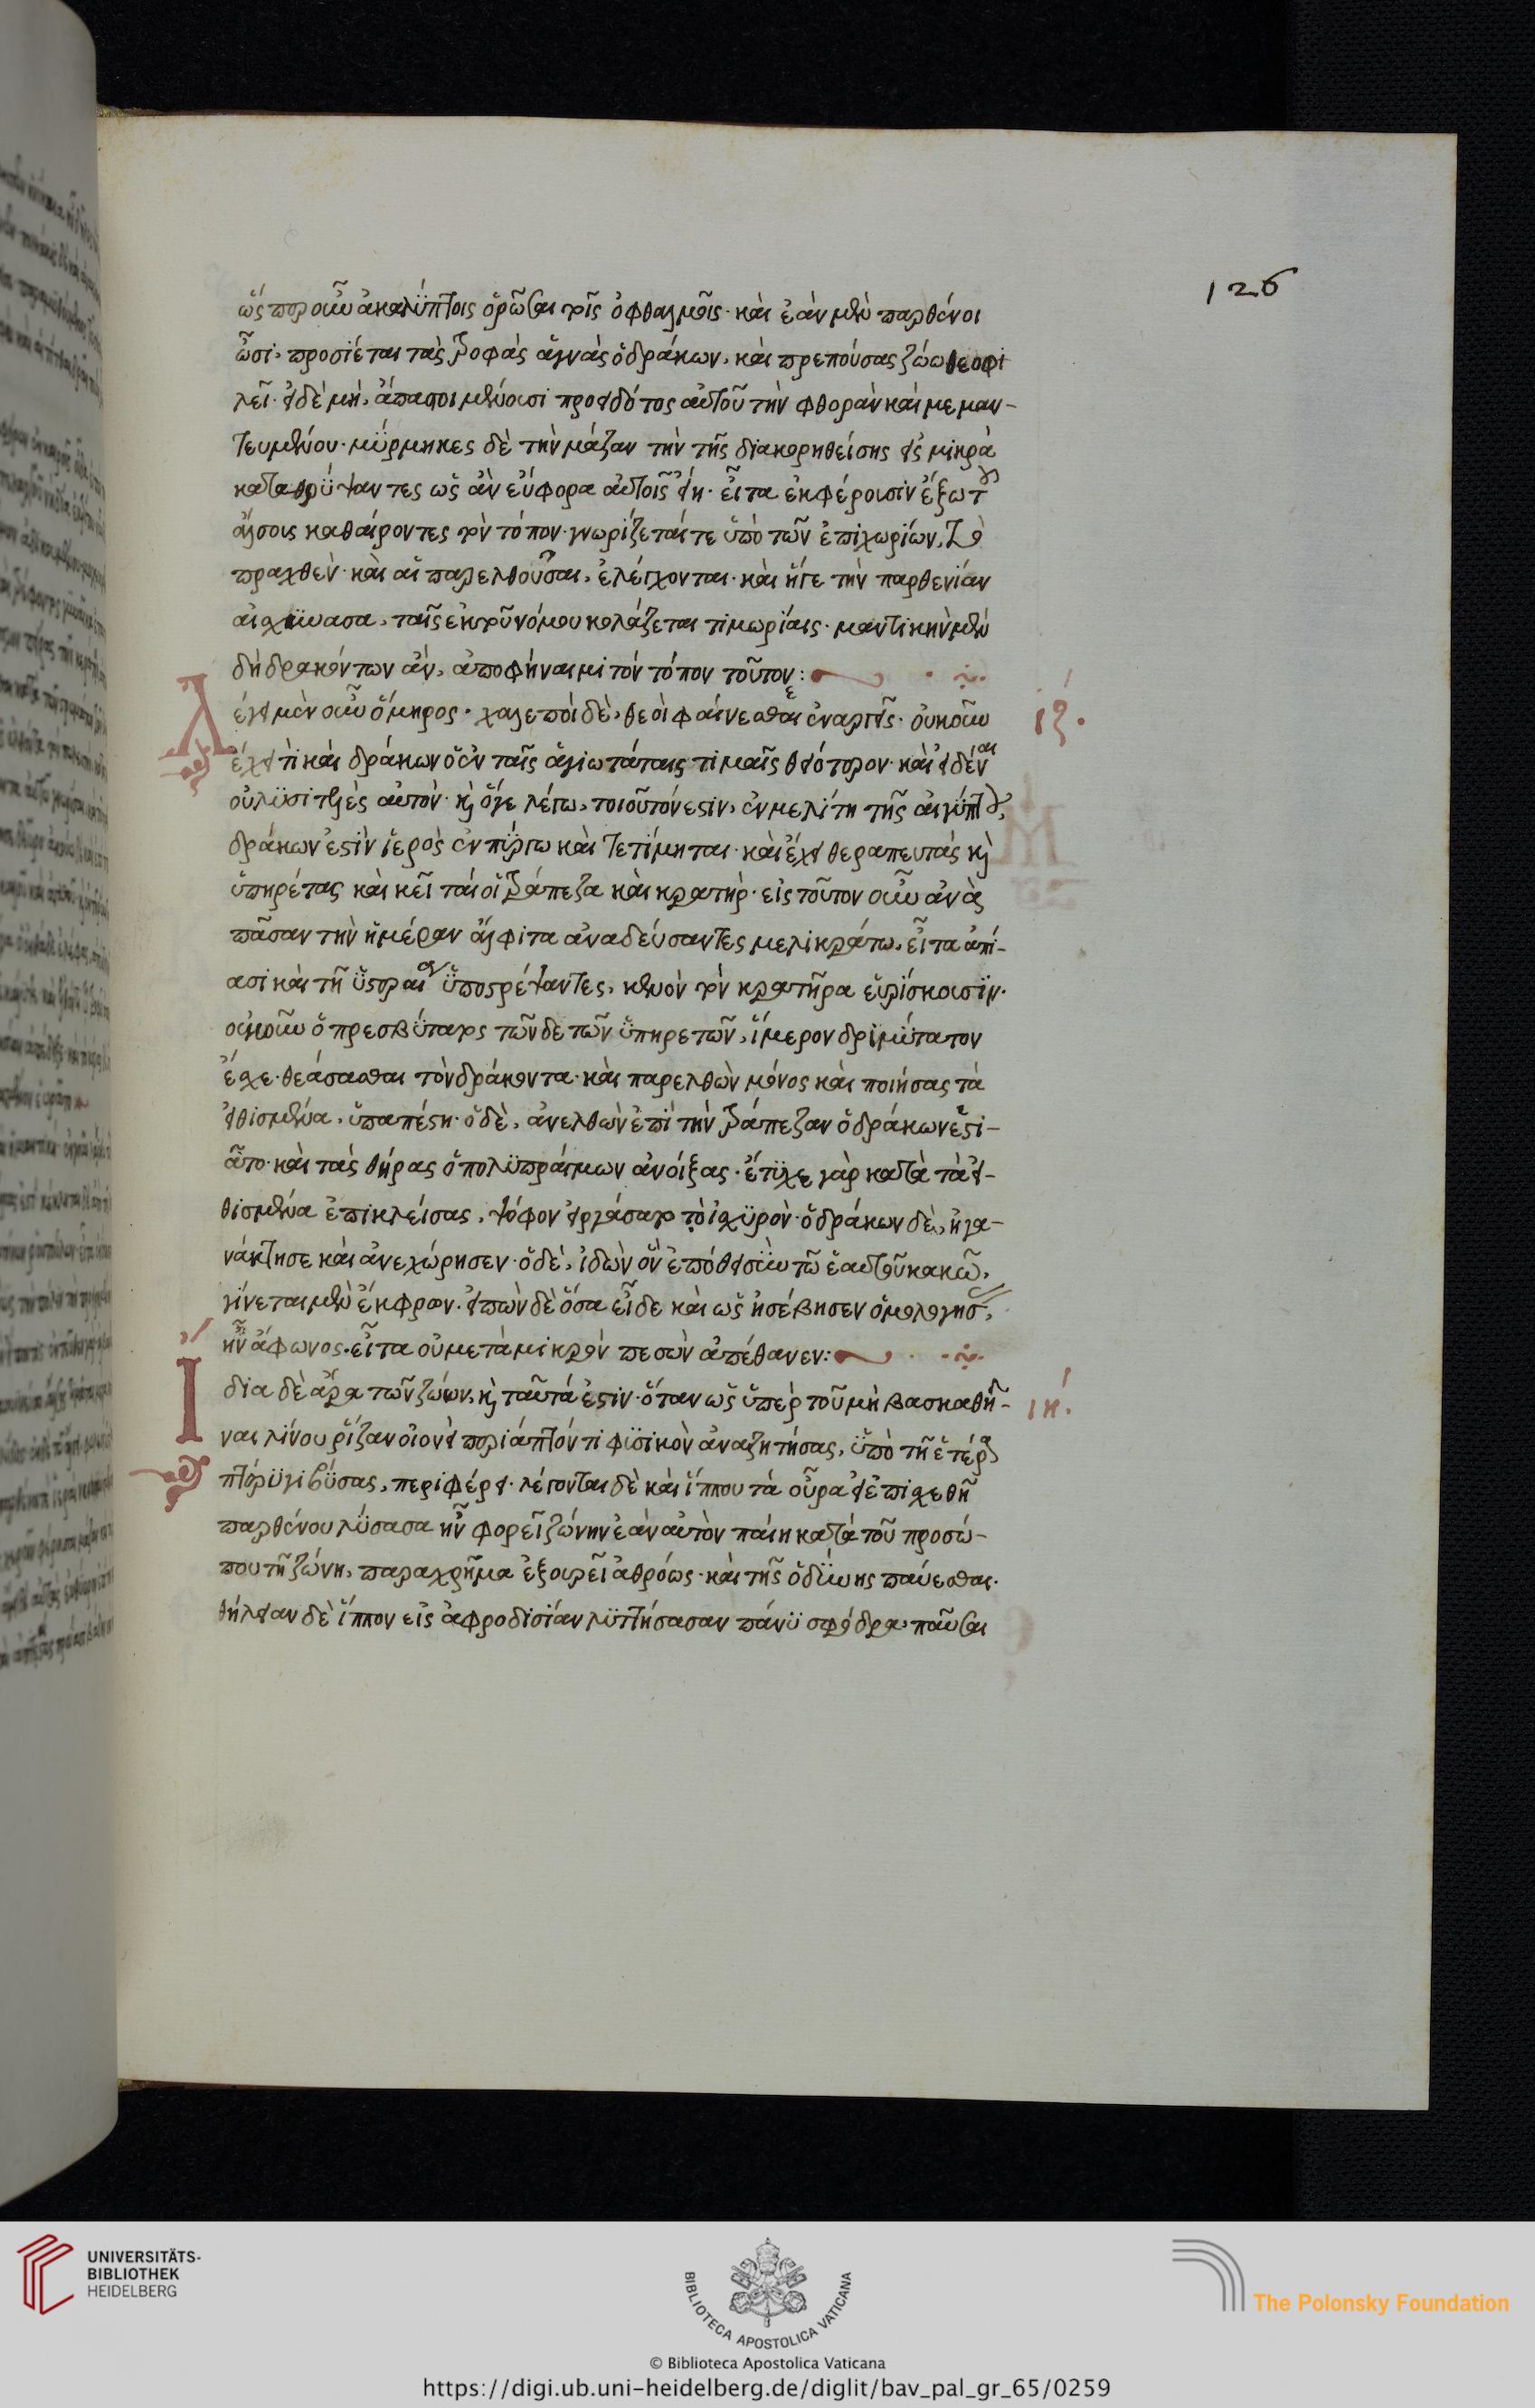 126
ὥσπερ οὖν ἀκαλύπτοις ὁρῶσαι τοῖς ὀφθαλμοῖς· καὶ ἐὰν μὲν παρθένοι
ὦσι, προσίεται τὰς τροφὰς ἁγνὰς ὁ δράκων, καὶ πρεπούσας ζώω θεοφι
λεῖ· εἰ δὲ μὴ, ἄπαστοι μένουσι προειδότος αὐτοῦ τὴν φθορὰν καὶ μεμαν-
τευμένου· μύρμηκες δὲ τὴν μάζαν τὴν τῆς διακορηθείσης εἰς μικρὰ
καταθρύψαντες ὡς ἂν εὔφορα αὐτοῖς εἴη· εἶτα ἐκφέρουσιν ἔξω τοῦ
ἄλσους καθαίροντες τὸν τόπον· γνωρίζεταί τε ὑπὸ τῶν ἐπιχωρίων, τὸ
πραχθὲν· καὶ αἱ παρελθοῦσαι, ἐλέγχονται· καὶ ἥγε τὴν παρθενίαν
αἰσχύνασα, ταῖς ἐκ τοῦ νόμου κολάζεται τιμωρίαις· μαντικὴν μὲν
δὴ δρακόντων ἂν, ἀποφήναιμι τὸν τόπον τοῦτον:
Λέγει μὲν οὖν ὅμηρος· χαλεποὶ δὲ, θεοὶ φαίνεσθαι ἐναργεῖς· οὐκοῦν ιζ.
ἔχει τὶ καὶ δράκων ὁ ἐν ταῖς ἁγιωτάταις τιμαῖς θειότερον· καὶ εἰδέναι
οὐ λυσιτελὲς αὐτὸν· καὶ ὅγε λέγω, τοιοῦτόν ἐστιν, ἐν μελίτη τῆς αἰγύπτου,
δράκων ἐστὶν ἱερὸς ἐν πύργω καὶ τετίμηται· καὶ ἔχει θεραπευτὰς καὶ
ὑπηρέτας καὶ κεῖται οἱ τράπεζα καὶ κρατήρ· εἰς τοῦτον οὖν ἀνὰ
πᾶσαν τὴν ἡμέραν ἄλφιτα ἀναδεύσαντες μελικράτω, εἶτα ἀπί-
ασι καὶ τῆ ὑστεραία ὑποστρέψαντες, κενὸν τὸν κρατῆρα εὑρίσκουσιν·
οὐκοῦν ὁ πρεσβύτατος τῶνδε τῶν ὑπηρετῶν, ἵμερον δριμύτατον
ἔσχε· θεάσασθαι τὸν δράκοντα· καὶ παρελθὼν μόνος καὶ ποιήσας τὰ
εἰθισμένα, ὑπαπέστη· ὁ δὲ, ἀνελθὼν ἐπὶ τὴν τράπεζαν ὁ δράκων εἱστι-
ᾶτο· καὶ τὰς θύρας ὁ πολυπράγμων ἀνοίξας· ἔτυχε γὰρ κατὰ τὰ εἰ-
θισμένα ἐπικλείσας, ψόφον εἰργάσατο τὸ ἰσχυρὸν· ὁ δράκων δὲ, ἠγα-
νάκτησε καὶ ἀνεχώρησεν· ὁ δὲ, ἰδὼν ὃν ἐπόθει σὺν τῶ ἑαυτοῦ κακῶ,
γίνεται μὲν ἔκφρων· εἰπὼν δὲ ὅσα εἶδε καὶ ὡς ἠσέβησεν ὁμολογήσας,
ἦν ἄφωνος· εἶτα οὐ μετὰ μικρὸν πεσὼν ἀπέθανεν:
Ἴδια δὲ ἄρα τῶν ζώων, καὶ ταῦτά ἐστιν· ὅταν ὡς ὑπὲρ τοῦ μὴ βασκαθῆ- ιη.
ναι λίνου ῥίζαν οἱονεὶ περίαπτόν τι φυσικὸν ἀναζητήσας, ὑπὸ τῆ ἑτέρα
πτέρυγι βύσας, περιφέρει· λέγονται δὲ καὶ ἵππου τὰ οὖρα εἰ ἐπισχεθῆ
παρθένου λύσασα ἣν φορεῖ ζώνην ἐὰν αὐτὸν παίη κατὰ τοῦ προσώ-
που τῆ ζώνη, παραχρῆμα ἐξουρεῖ ἀθρόως· καὶ τῆς ὀδύνης παύεσθαι·
θήλειαν δὲ ἵππον εἰς ἀφροδισίαν λυττήσασαν πάνυ σφόδρα, παῦσαι
UNIVERSITÄTS-
BIBLIOTHEK
HEIDELBERG
BIBLIOTECA APOSTOLICA VATICANA
© Biblioteca Apostolica Vaticana
The Polonsky Foundation
https://digi.ub.uni-heidelberg.de/diglit/bav_pal_gr_65/0259